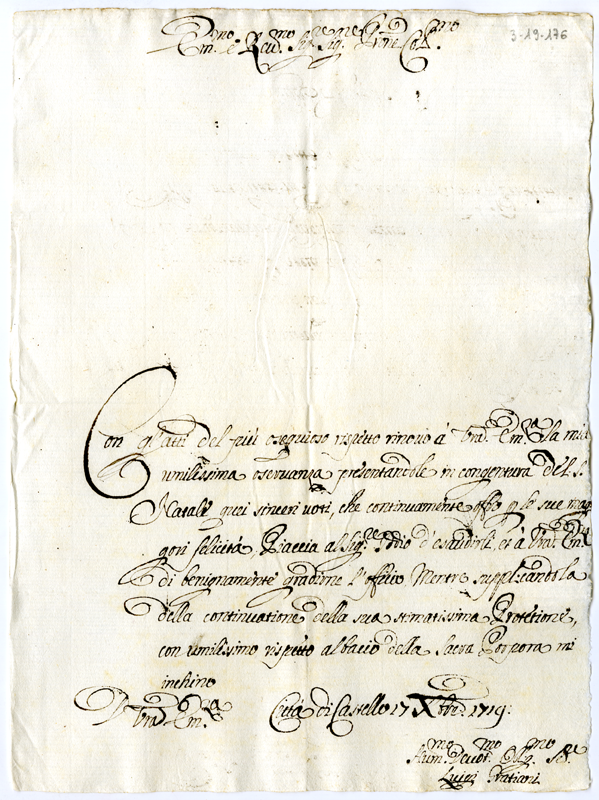 3-19-176
Em.mo e Rev.mo Sig.r Sig.r Prone Col.mo
Con gl'atti del più ossequioso rispetto rinovo à Vra. Em.za la mia
umilissima oservanza presentandole in congentura del S.
Natale quei sinceri voti, che continuamente offro p le sue mag
gori felicità. Piaccia al Sig.re Iddio d'esaudirli, et à Vra. Em.za
di benignamente gradirne l'offitio Mentre supplicandola
della continuatione della sua stimatissima Protetione,
con umilissimo rispetto al bacio della Sacra Porpora mi
inchino
D Vra. Em.za Città di Castello 17 Xbre. 1719.
Hum.mo Devot.mo Oblig.mo Se.re
Luigi Gratiani